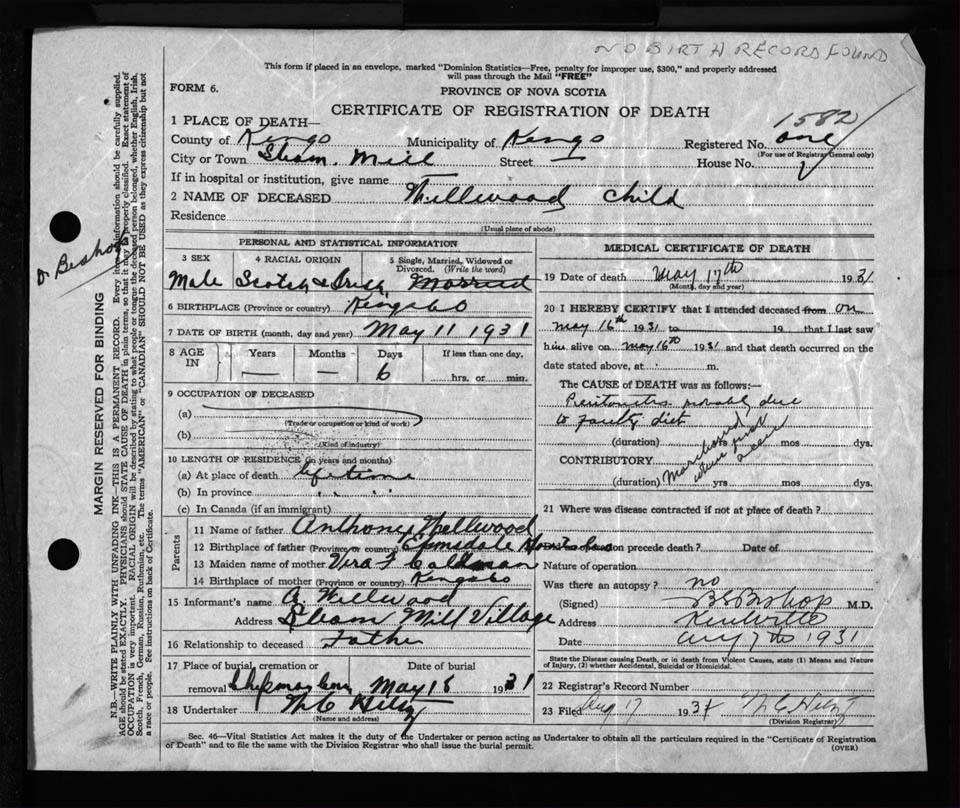 NO BIRTH RECORD FOUND
This form if placed in an envelope, marked "Dominion Statistics—Free, penalty for improper use, $300," and properly addressed
will pass through the Mail "FREE"
FORM 6.
PROVINCE OF NOVA SCOTIA
CERTIFICATE OF REGISTRATION OF DEATH
1582
1 PLACE OF DEATH—
County of Kings Municipality of Kings Registered No. one
(For use of Registrar General only)
City or Town Steam. Mill Street — House No.
If in hospital or institution, give name —
2 NAME OF DECEASED Thellwood Child
Residence
(Usual place of abode)
PERSONAL AND STATISTICAL INFORMATION
3 SEX 4 RACIAL ORIGIN 5 Single, Married, Widowed or
Divorced. (Write the word)
Male Scotch & Married
6 BIRTHPLACE (Province or country) Kings Co
7 DATE OF BIRTH (month, day and year) May 11 1931
8 AGE IN Years Months Days If less than one day,
— — 6 hrs. or min.
9 OCCUPATION OF DECEASED
(a)
(Trade or occupation or kind of work)
(b)
(Kind of industry)
10 LENGTH OF RESIDENCE (in years and months)
(a) At place of death life time
(b) In province " "
(c) In Canada (if an immigrant)
Parents
11 Name of father Anthony Thellwood
12 Birthplace of father (Province or country)
13 Maiden name of mother Vera F Caldman
14 Birthplace of mother (Province or country) Kings Co
15 Informant's name A Wellwood
Address Steam Mill Village
16 Relationship to deceased Father
17 Place of burial, cremation or Date of burial
removal Chipman May 18 1931
18 Undertaker
(Name and address)
MEDICAL CERTIFICATE OF DEATH
19 Date of death May 17th 1931
(Month, day and year)
20 I HEREBY CERTIFY that I attended deceased from on
May 16th 1931 to 19 that I last saw
him alive on May 16th 1931 and that death occurred on the
date stated above, at m.
The CAUSE of DEATH was as follows:—
Peritonitis probably due
to faulty diet
(duration) yrs mos dys.
CONTRIBUTORY
Moribund when first seen
(duration) yrs mos dys.
21 Where was disease contracted if not at place of death?
Did an operation precede death? Date of
Nature of operation
Was there an autopsy? no
(Signed) B S Bishop M.D.
Address Kentville
Date Aug 7th 1931
State the Disease causing Death, or in death from Violent Causes, state (1) Means and Nature
of Injury, (2) whether Accidental, Suicidal or Homicidal.
22 Registrar's Record Number
23 Filed Aug 17 1931
(Division Registrar)
Sec. 46—Vital Statistics Act makes it the duty of the Undertaker or person acting as Undertaker to obtain all the particulars required in the "Certificate of Registration
of Death" and to file the same with the Division Registrar who shall issue the burial permit.
(OVER)
Dr Bishop
MARGIN RESERVED FOR BINDING
N.B.—WRITE PLAINLY WITH UNFADING INK—THIS IS A PERMANENT RECORD. Every item of information should be carefully supplied.
AGE should be stated EXACTLY. PHYSICIANS should STATE CAUSE OF DEATH in plain terms, so that it may be properly classified. Exact statement of
OCCUPATION is very important. RACIAL ORIGIN will be described by stating to what people or tongue the deceased person belonged, whether English, Irish,
Scotch, French, German, Russian, Ruthenian, etc. The terms "AMERICAN" or "CANADIAN" SHOULD NOT BE USED as they express citizenship but not
a race or people. See instructions on back of Certificate.